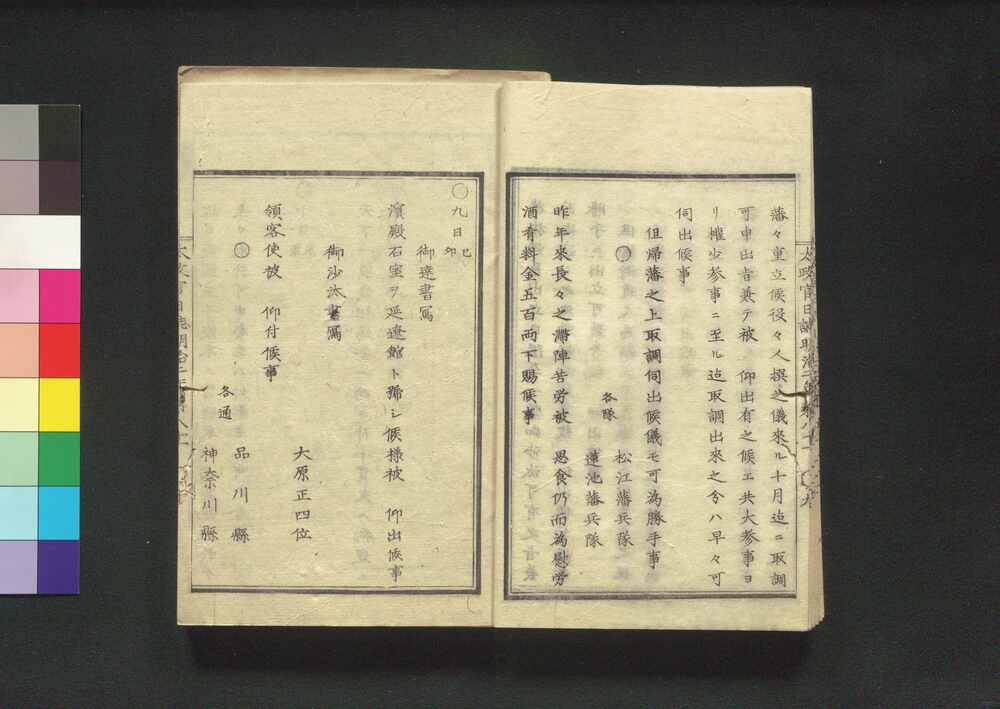 藩々重立候役々人撰之儀來ル十月迄ニ取調
可申出旨兼テ被　仰出有之候エ共大参事ヨ
リ權少参事ニ至ル迄取調出來之分ハ早々可
伺出候事
但帰藩之上取調伺出候儀モ可為勝手事
○　松江藩兵隊
各隊
蓮池藩兵隊
昨年來長々之滞陣苦労被　思食仍而為慰労
酒肴料金五百両下賜候事
○九日 己卯
御達書寫
濱殿石室ヲ延遼館ト稱シ候様被　仰出候事
御沙汰書寫
大原正四位
領客使被　仰付候事
○　品川縣
各通
神奈川縣